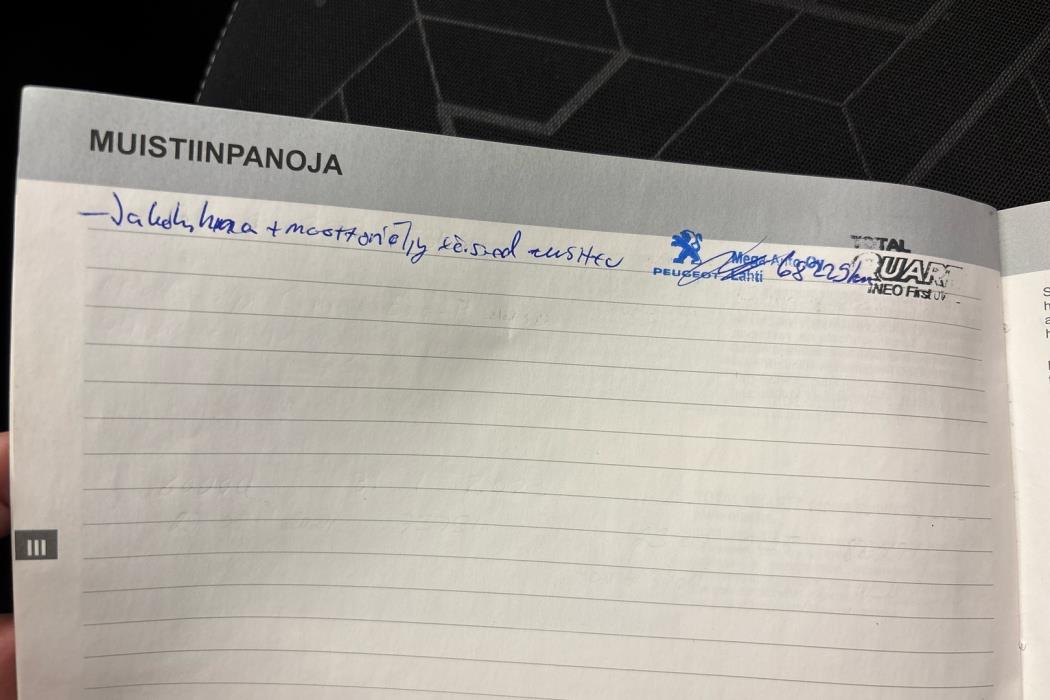 MUISTIINPANOJA
- Jakohihna + moottoriöljy
PEUGEOT Mega-Auto Oy Lahti 68225km
TOTAL
QUARTZ
INEO First
III